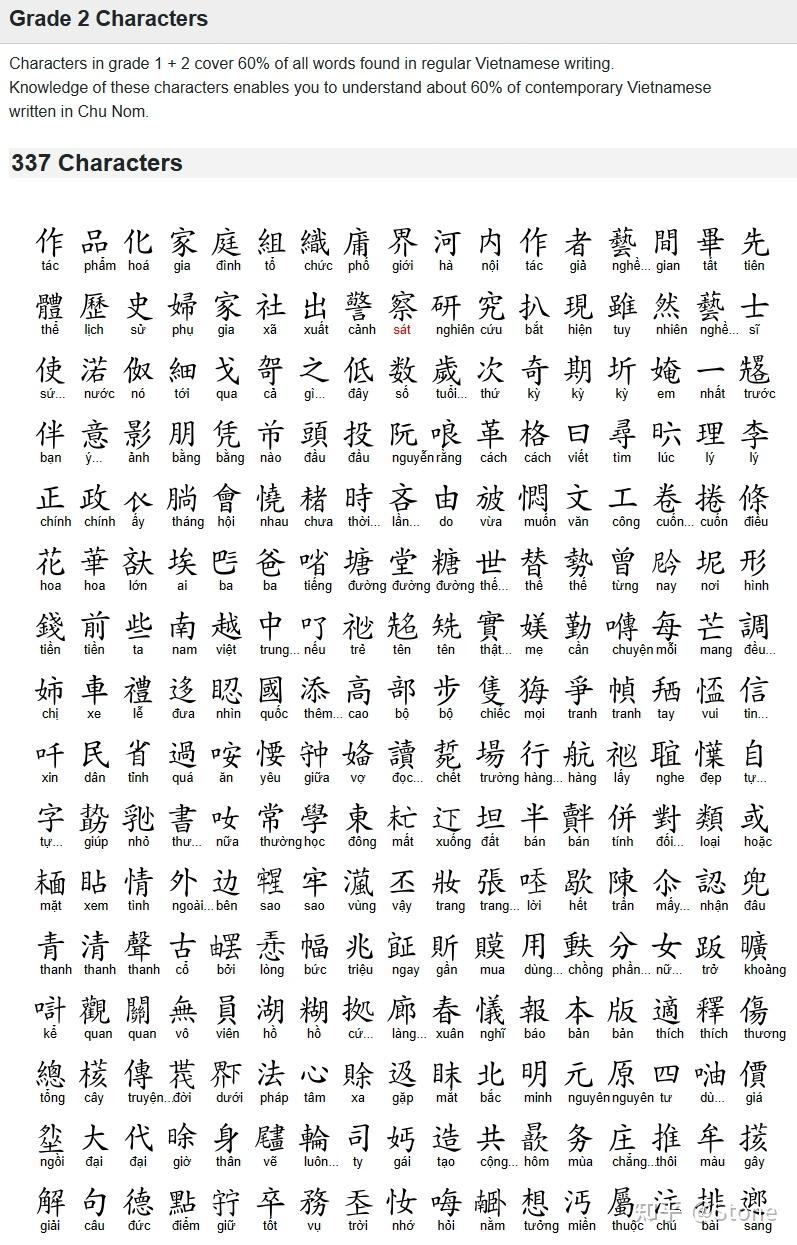 Grade 2 Characters
Characters in grade 1 + 2 cover 60% of all words found in regular Vietnamese writing.
Knowledge of these characters enables you to understand about 60% of contemporary Vietnamese
written in Chu Nom.
337 Characters
作 品 化 家 庭 組 織 庯 界 河 内 作 者 藝 間 畢 先
tác phẩm hoá gia đình tổ chức phố giới hà nội tác giả nghề... gian tất tiên
體 歷 史 婦 家 社 出 警 察 研 究 扒 現 雖 然 藝 士
thể lịch sử phụ gia xã xuất cảnh sát nghiên cứu bắt hiện tuy nhiên nghề... sĩ
使 渃 伮 細 戈 哿 之 低 数 歲 次 奇 期 圻 㛪 一
sứ... nước nó tới qua cả gì... đây số tuổi... thứ kỳ kỳ kỳ em nhất trước
伴 意 影 朋 凭 芇 頭 投 阮 哴 革 格 曰 尋 𣅶 理 李
bạn ý... ảnh bằng bằng nào đầu đầu nguyễn rằng cách cách viết tìm lúc lý lý
正 政 𧘇 𣎃 會 憢 渚 時 吝 由 𣃣 悶 文 工 卷 捲 條
chính chính ấy tháng hội nhau chưa thời... lần... do vừa muốn văn công cuốn... cuốn điều
花 華 埃 𠀧 爸 㗂 塘 堂 糖 世 替 勢 曾 坭 形
hoa hoa lớn ai ba ba tiếng đường đường đường thế... thế thế từng nay nơi hình
錢 前 些 南 越 中 𠮩 實 媄 勤 囀 每 芒 調
tiền tiền ta nam việt trung... nếu trẻ tên tên thật... mẹ cần chuyện mỗi mang đều...
姉 車 禮 迻 𥆾 國 添 高 部 步 隻 爭 幀 𢬣 信
chị xe lễ đưa nhìn quốc thêm... cao bộ bộ chiếc mọi tranh tranh tay vui tin...
吀 民 省 過 咹 㤇 讀 場 行 航 自
xin dân tỉnh quá ăn yêu giữa vợ đọc... chết trường hàng... hàng lấy nghe đẹp tự...
字 書 女 常 學 東 坦 半 併 對 類 或
tự... giúp nhỏ thư... nữa thường học đông mất xuống đất bán bán tính đối... loại hoặc
𩈘 䀡 情 外 边 牢 丕 妝 張 𠳒 歇 陳 認 兜
mặt xem tình ngoài... bên sao sao vùng vậy trang trang... lời hết trần mấy... nhận đâu
青 清 聲 古 幅 兆 用 分 女 曠
thanh thanh thanh cổ bởi lòng bức triệu ngay gần mua dùng... chồng phần... nữ... trở khoảng
計 觀 關 無 員 湖 糊 拠 廊 春 𢣂 報 本 版 適 釋 傷
kể quan quan vô viên hồ hồ cứ... làng... xuân nghĩ báo bản bản thích thích thương
總 傳 法 心 賒 北 明 元 原 四 價
tổng cây truyện... đời dưới pháp tâm xa gặp mắt bắc minh nguyên nguyên tư dù... giá
大 代 身 輪 司 造 共 务 庄 推 牟
ngồi đại đại giờ thân vẽ luôn... ty gái tạo cộng... hôm mùa chẳng... thôi màu gây
解 句 德 點 卒 務 𡗶 想 屬 注 排
giải câu đức điểm giữ tốt vụ trời nhớ hỏi nằm tưởng miền thuộc chú bài sang
知乎 @Stone